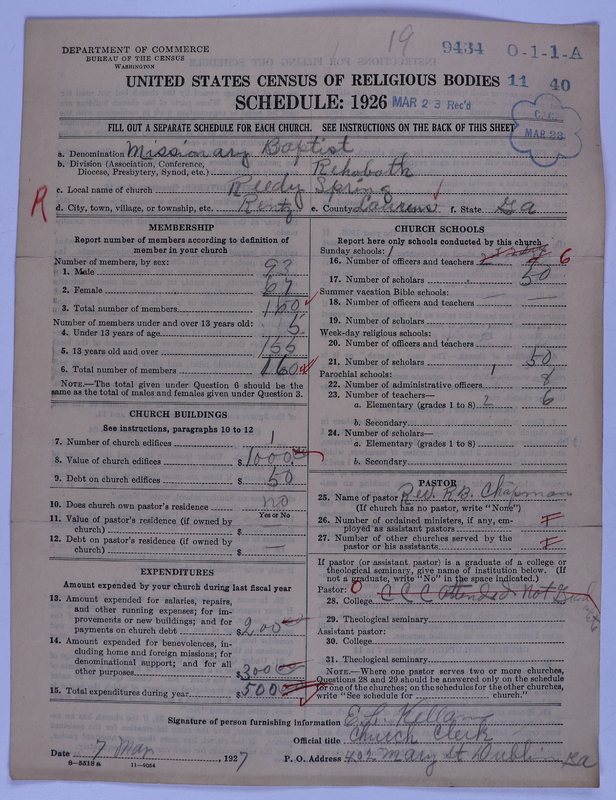 19
9434 0-1-1-A
DEPARTMENT OF COMMERCE
BUREAU OF THE CENSUS
WASHINGTON
UNITED STATES CENSUS OF RELIGIOUS BODIES 11 40
SCHEDULE: 1926 MAR 23 Rec'd
MAR 28
FILL OUT A SEPARATE SCHEDULE FOR EACH CHURCH. SEE INSTRUCTIONS ON THE BACK OF THIS SHEET
a. Denomination Missionary Baptist
b. Division (Association, Conference,
Diocese, Presbytery, Synod, etc.) Rehoboth
c. Local name of church Reedy Spring
R
d. City, town, village, or township, etc. Rentz e. County Laurens f. State Ga
MEMBERSHIP
Report number of members according to definition of
member in your church
Number of members, by sex:
1. Male 93
2. Female 67
3. Total number of members 160
Number of members under and over 13 years old:
4. Under 13 years of age 5
5. 13 years old and over 155
6. Total number of members 160
NOTE.—The total given under Question 6 should be the
same as the total of males and females given under Question 3.
CHURCH BUILDINGS
See instructions, paragraphs 10 to 12
7. Number of church edifices 1
8. Value of church edifices $1000
9. Debt on church edifices $50
10. Does church own pastor's residence no
Yes or No
11. Value of pastor's residence (if owned by
church) $
12. Debt on pastor's residence (if owned by
church) $ —
EXPENDITURES
Amount expended by your church during last fiscal year
13. Amount expended for salaries, repairs,
and other running expenses; for im-
provements or new buildings; and for
payments on church debt $200
14. Amount expended for benevolences, in-
cluding home and foreign missions; for
denominational support; and for all
other purposes $300
15. Total expenditures during year $500
CHURCH SCHOOLS
Report here only schools conducted by this church
Sunday schools: 1
16. Number of officers and teachers 6
17. Number of scholars 50
Summer vacation Bible schools:
18. Number of officers and teachers — —
19. Number of scholars
Week-day religious schools:
20. Number of officers and teachers
21. Number of scholars 50
Parochial schools: 1
22. Number of administrative officers 8
23. Number of teachers—
a. Elementary (grades 1 to 8) 2 6
b. Secondary
24. Number of scholars—
a. Elementary (grades 1 to 8)
b. Secondary
PASTOR
25. Name of pastor Rev. R.B. Chapman
(If church has no pastor, write "None")
26. Number of ordained ministers, if any, em-
ployed as assistant pastors
27. Number of other churches served by the
pastor or his assistants
If pastor (or assistant pastor) is a graduate of a college or
theological seminary, give name of institution below. (If
not a graduate, write "No" in the space indicated.)
Pastor: 0
28. College C C C attended not Grad
29. Theological seminary
Assistant pastor:
30. College
31. Theological seminary
NOTE.—Where one pastor serves two or more churches,
Questions 28 and 29 should be answered only on the schedule
for one of the churches; on the schedules for the other churches,
write "See schedule for church."
Signature of person furnishing information E.L. Kellam
Official title Church Clerk
Date 7 Mar, 1927 P. O. Address 402 Mary st Dublin Ga
8—5518 a 11—9054